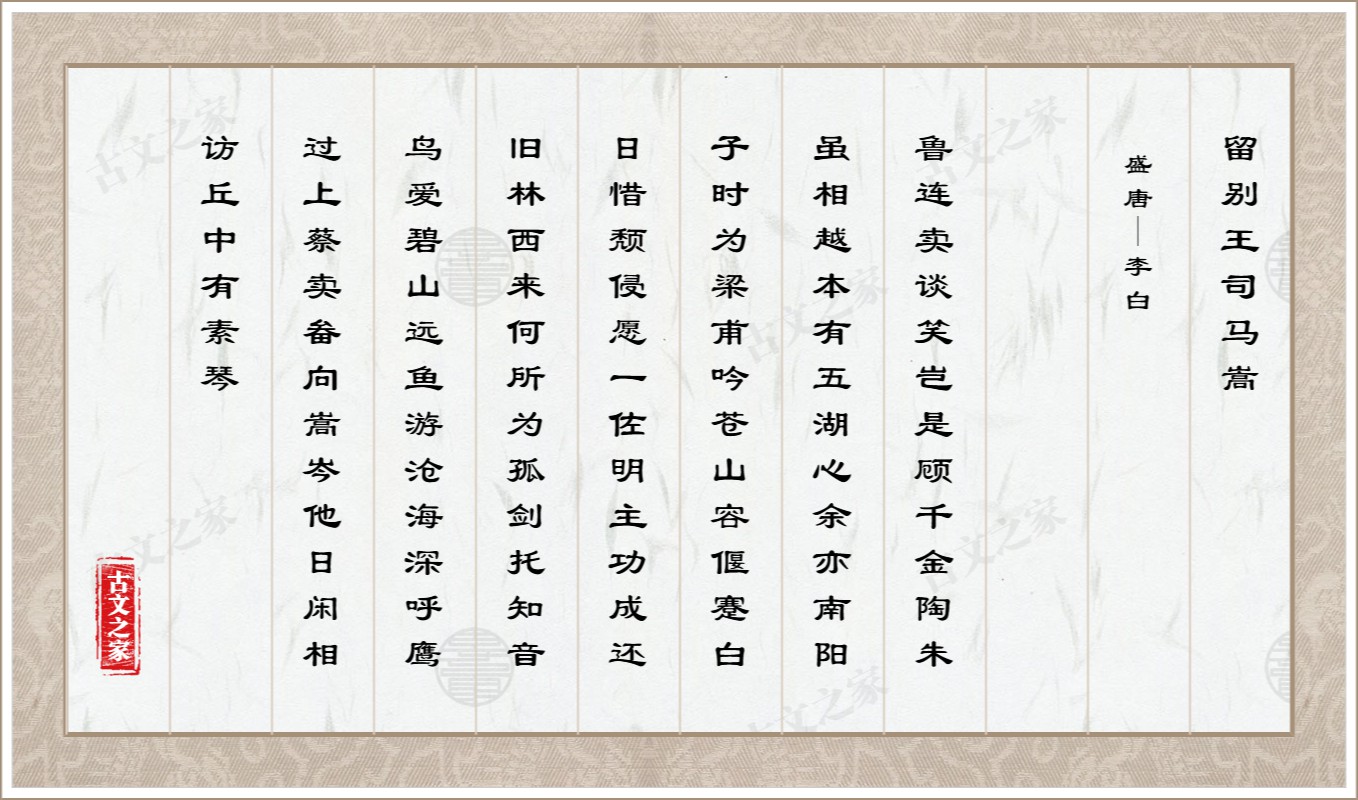 留别王司马嵩
盛唐—李白
鲁连卖谈笑岂是顾千金陶朱
虽相越本有五湖心余亦南阳
子时为梁甫吟苍山容偃蹇白
日惜颓侵愿一佐明主功成还
旧林西来何所为孤剑托知音
鸟爱碧山远鱼游沧海深呼鹰
过上蔡卖畚向嵩岑他日闲相
访丘中有素琴
古文之家
古文之家
古文之家
古文之家
古文之家
古文之家
古文之家